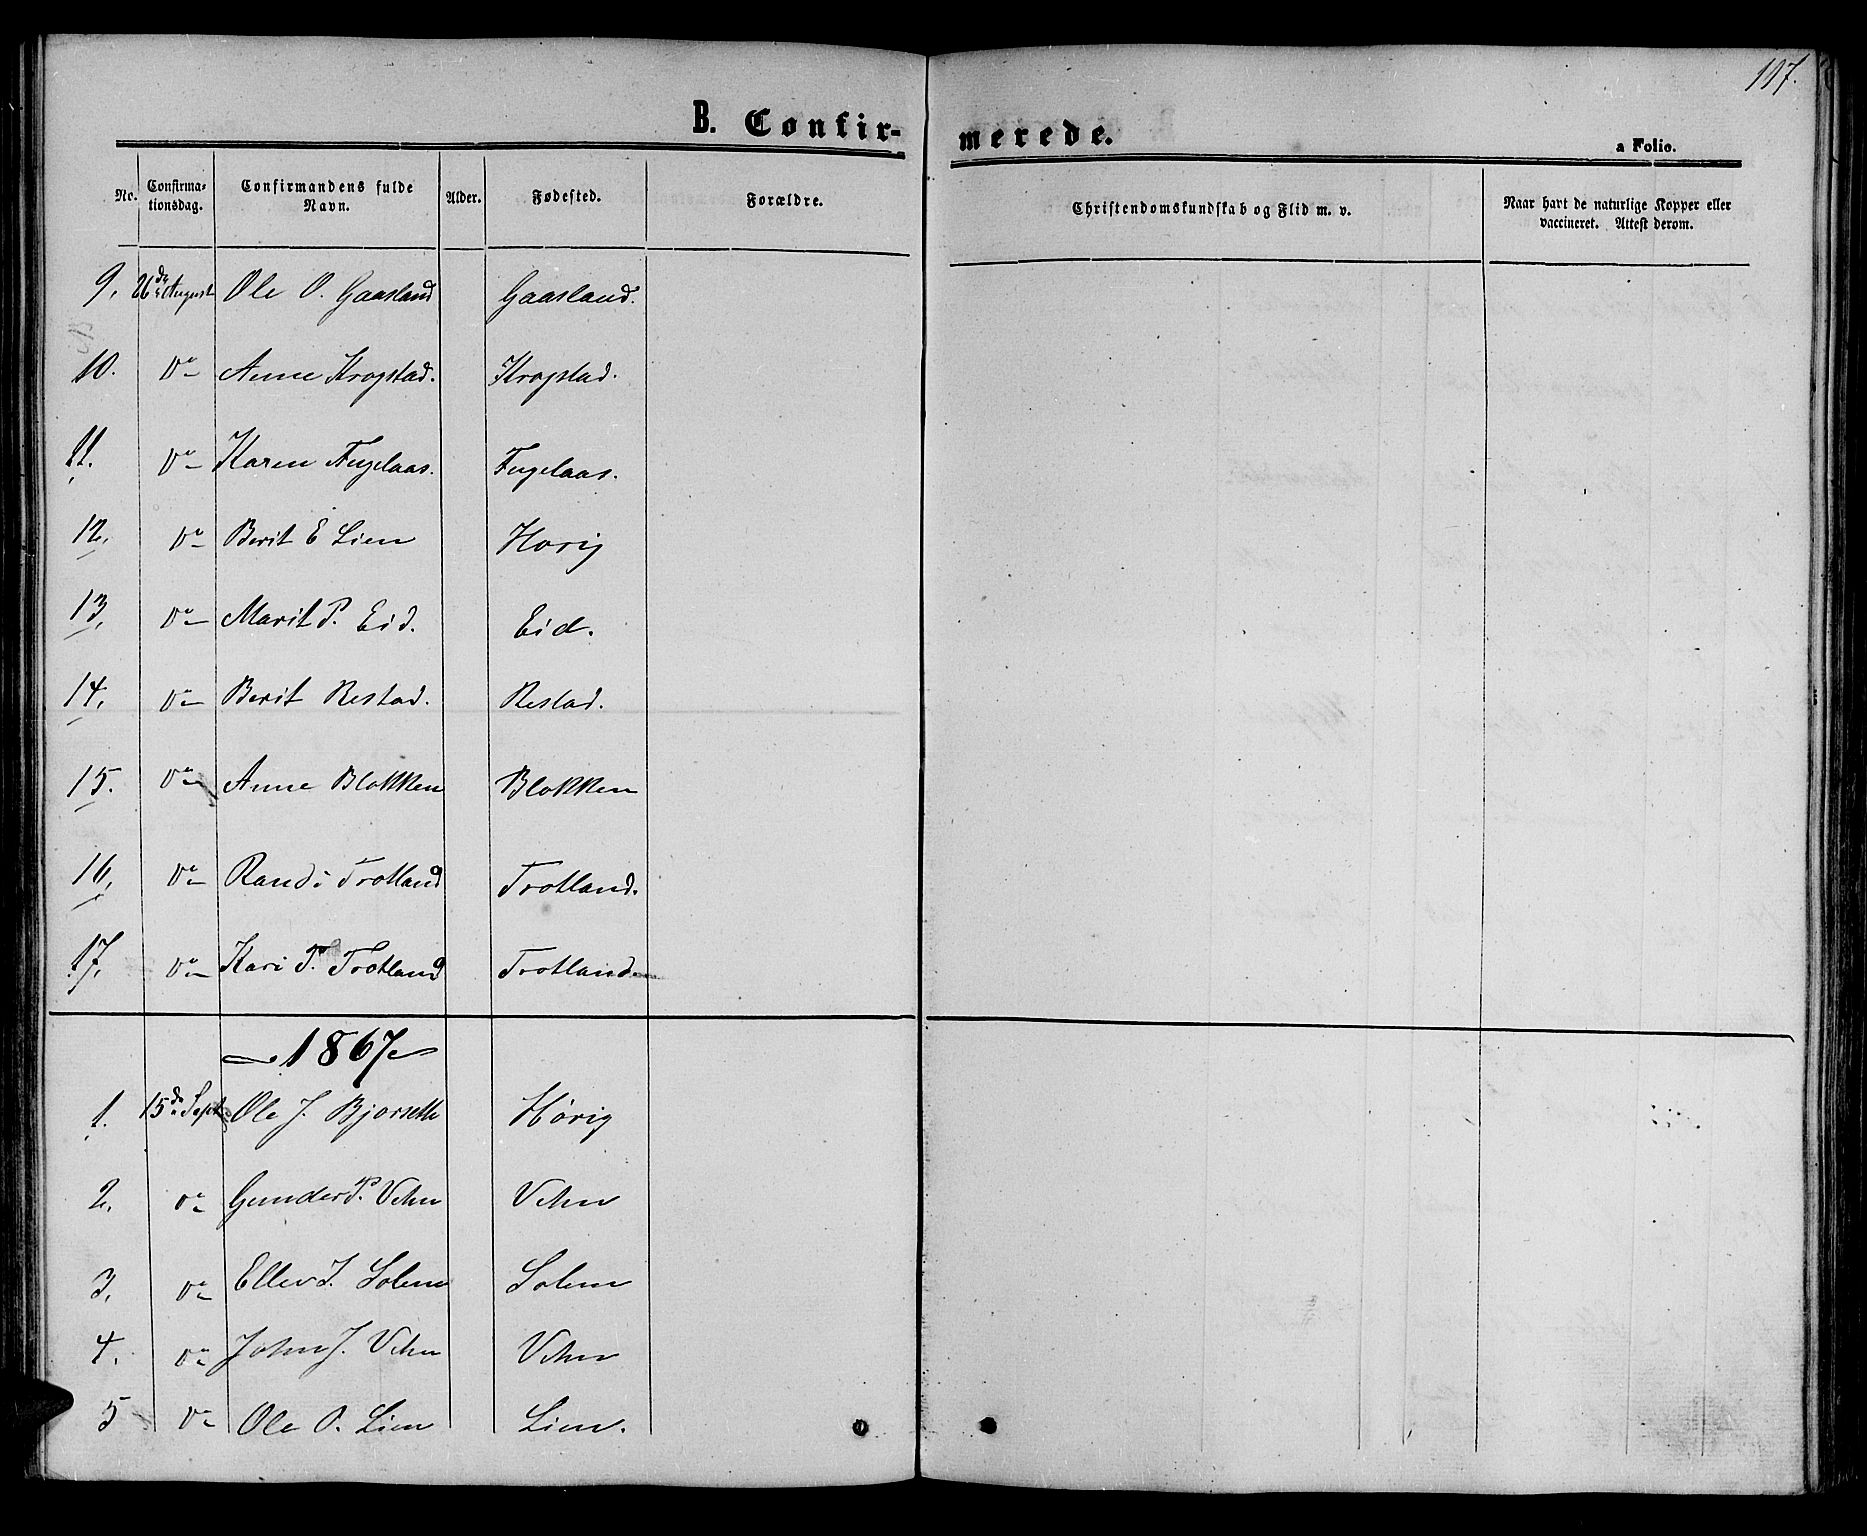 107.
B. Confir-
merede.
a Folio.
No.
Confirma-
tionsdag.
Confirmandens fulde
Navn.
Alder.
Fødested.
Forældre.
Christendomskundskab og Flid m. v.
Naar havt de naturlige Kopper eller
vaccineret. Attest derom.
9. 26de August Ole O. Gaasland Gaasland.
10. Do Anne Krogstad. Krogstad.
11. Do Karen Fugelaas. Fugelaas.
12. Do Berit E Lien Horig
13. Do Marit P. Eid. Eid.
14. Do Berit Restad. Restad.
15. Do Anne Blokken Blokken
16. Do Randi Trotland Trotland.
17. Do Kari P. Trotland Trotland.
1867
1. 15de Sept. Ole J. Bjorseth Hörig
2. Do Gunder P. Vehn Vehn
3. Do Ellev J. Solem Solem
4. Do John J. Vehn Vehn
5 Do Ole O. Lien Lien.